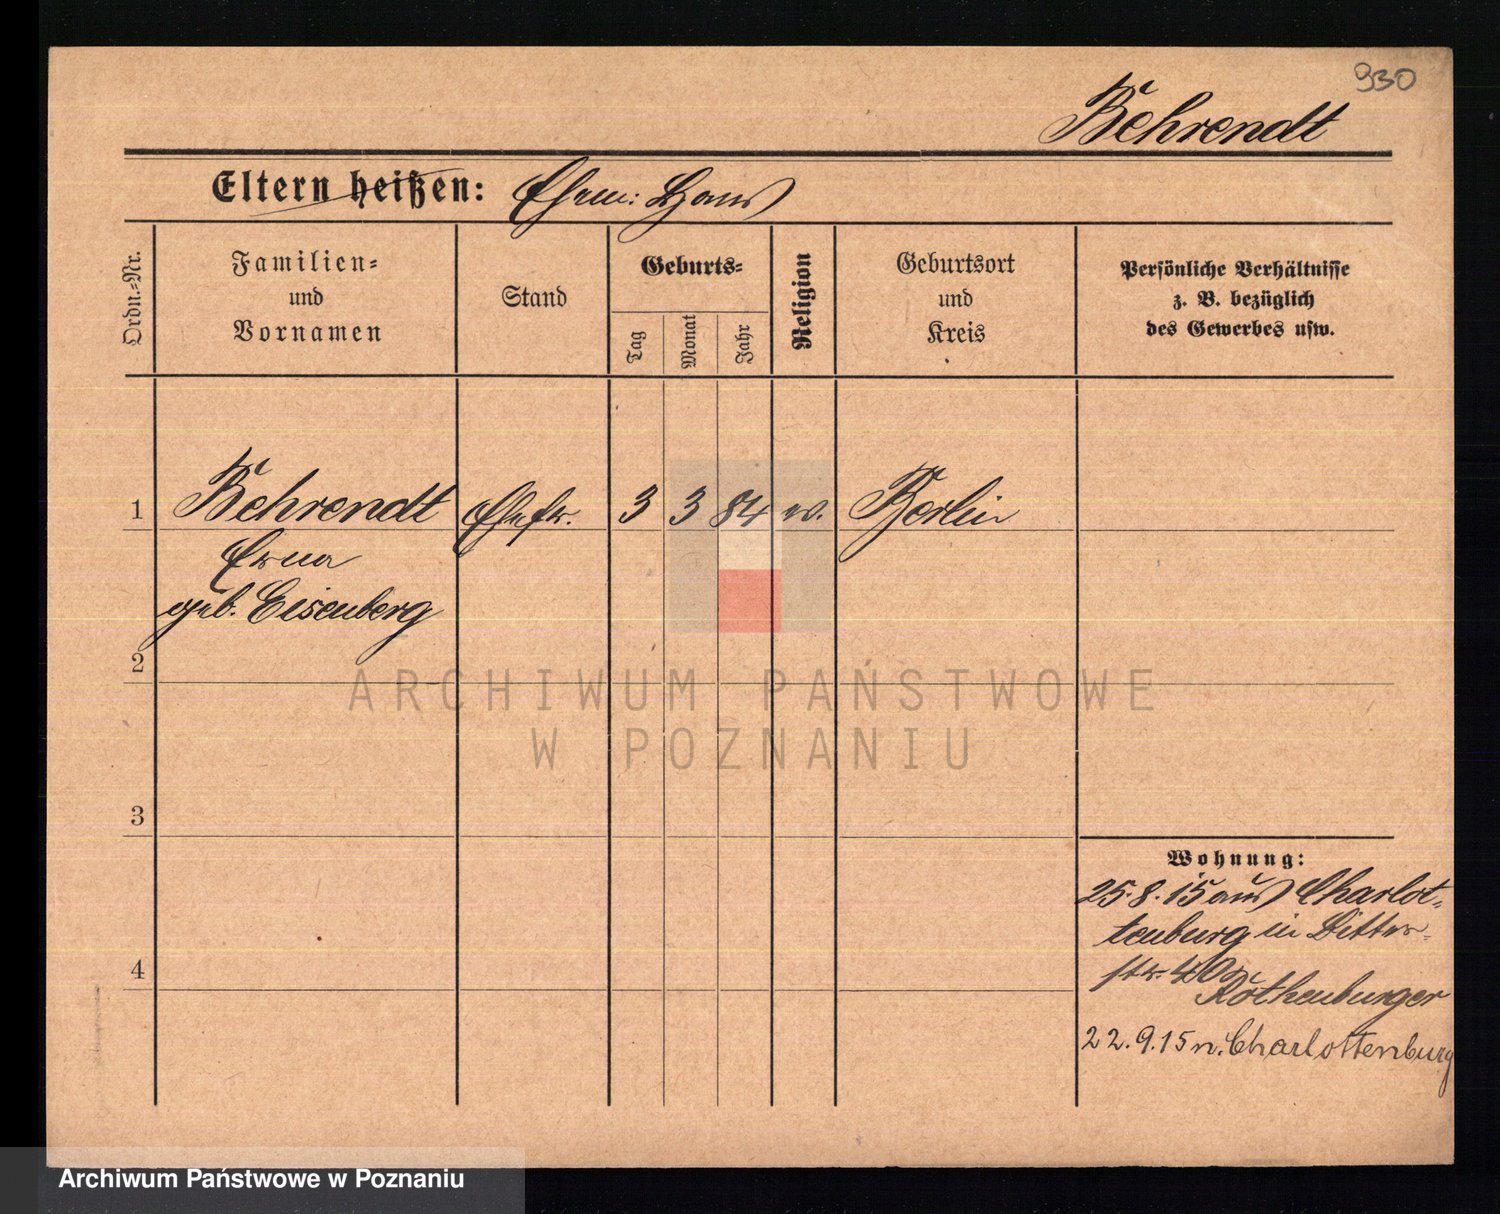 930
Behrendt
Eltern heißen: Ehem: Hans
Ordn.-Nr.
Familien-
und
Vornamen
Stand
Geburts-
Tag
Monat
Jahr
Religion
Geburtsort
und
Kreis
Persönliche Verhältnisse
z. B. bezüglich
des Gewerbes usw.
1 Behrendt Ehefr. 3 3 84 Berlin
Erna
geb. Eisenberg
2
3
4
Wohnung:
25.8.15 aus Charlot-
tenburg in Ritter-
str. 40
Rothenburger
22.9.15 n. Charlottenburg
ARCHIWUM PAŃSTWOWE
W POZNANIU
Archiwum Państwowe w Poznaniu